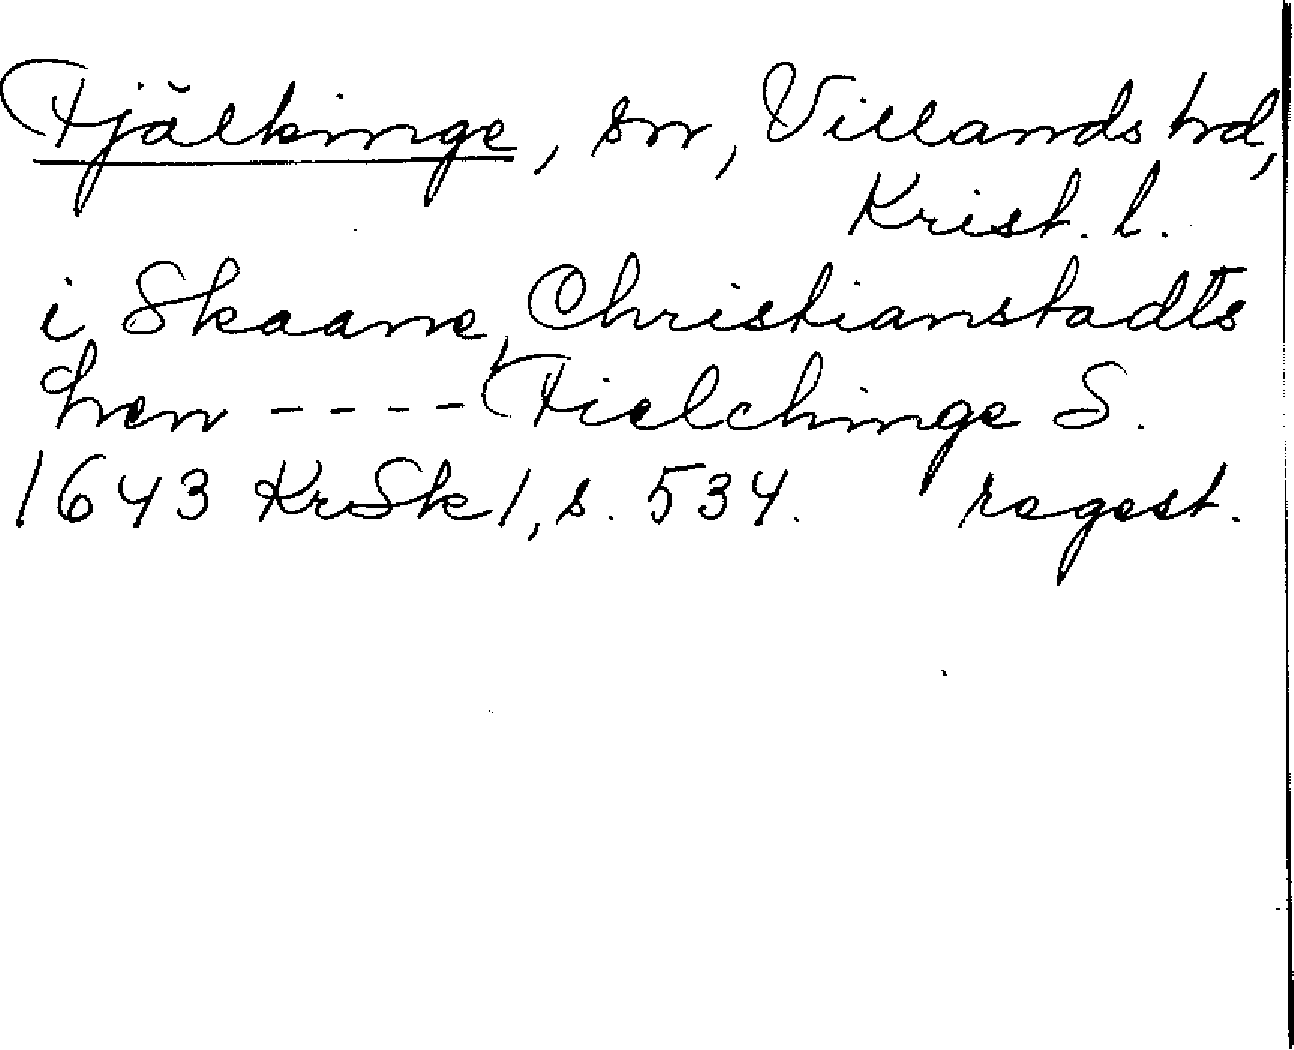 Fjälkinge, sn, Villands hd,
Krist. l.
i Skaane, Christianstadts
hren - - - - Fielchinge S.
1643 KrSk1, s. 534. regest.